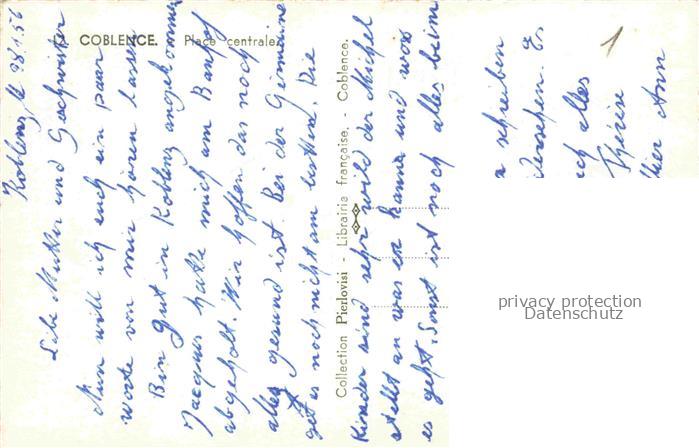 COBLENCE. Place centrale.
Koblenz, le 28.1.56
Liebe Mutter und Geschwister
Nun will ich euch ein paar
worte von mir hören lassen
Bin gut in Koblenz angekommen
Jacques hatte mich am Banhof
abgeholt. Wir hoffen das noch
alles gesund ist. Bei der Germaine
get es noch nicht am besten. Die
Collection Pierlovisi - Librairie française. - Coblence.
Kinder sind sehr wild der Michel
stellt an was er kann und was
es geht. Sonst ist noch alles beim
schreiben
ch alles
Thérèse
Ann
1
privacy protection
Datenschutz